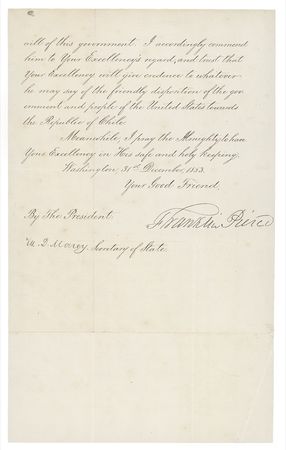 will of this government. I accordingly commend
him to Your Excellency's regard, and trust that
Your Excellency will give credence to whatever
he may say of the friendly disposition of the gov
ernment and people of the United States towards
the Republic of Chile.
Meanwhile, I pray the Almighty to have
Your Excellency in His safe and holy keeping.
Washington, 31st December, 1853.
Your Good Friend,
Franklin Pierce
By The President.
W. L. Marcy, Secretary of State.